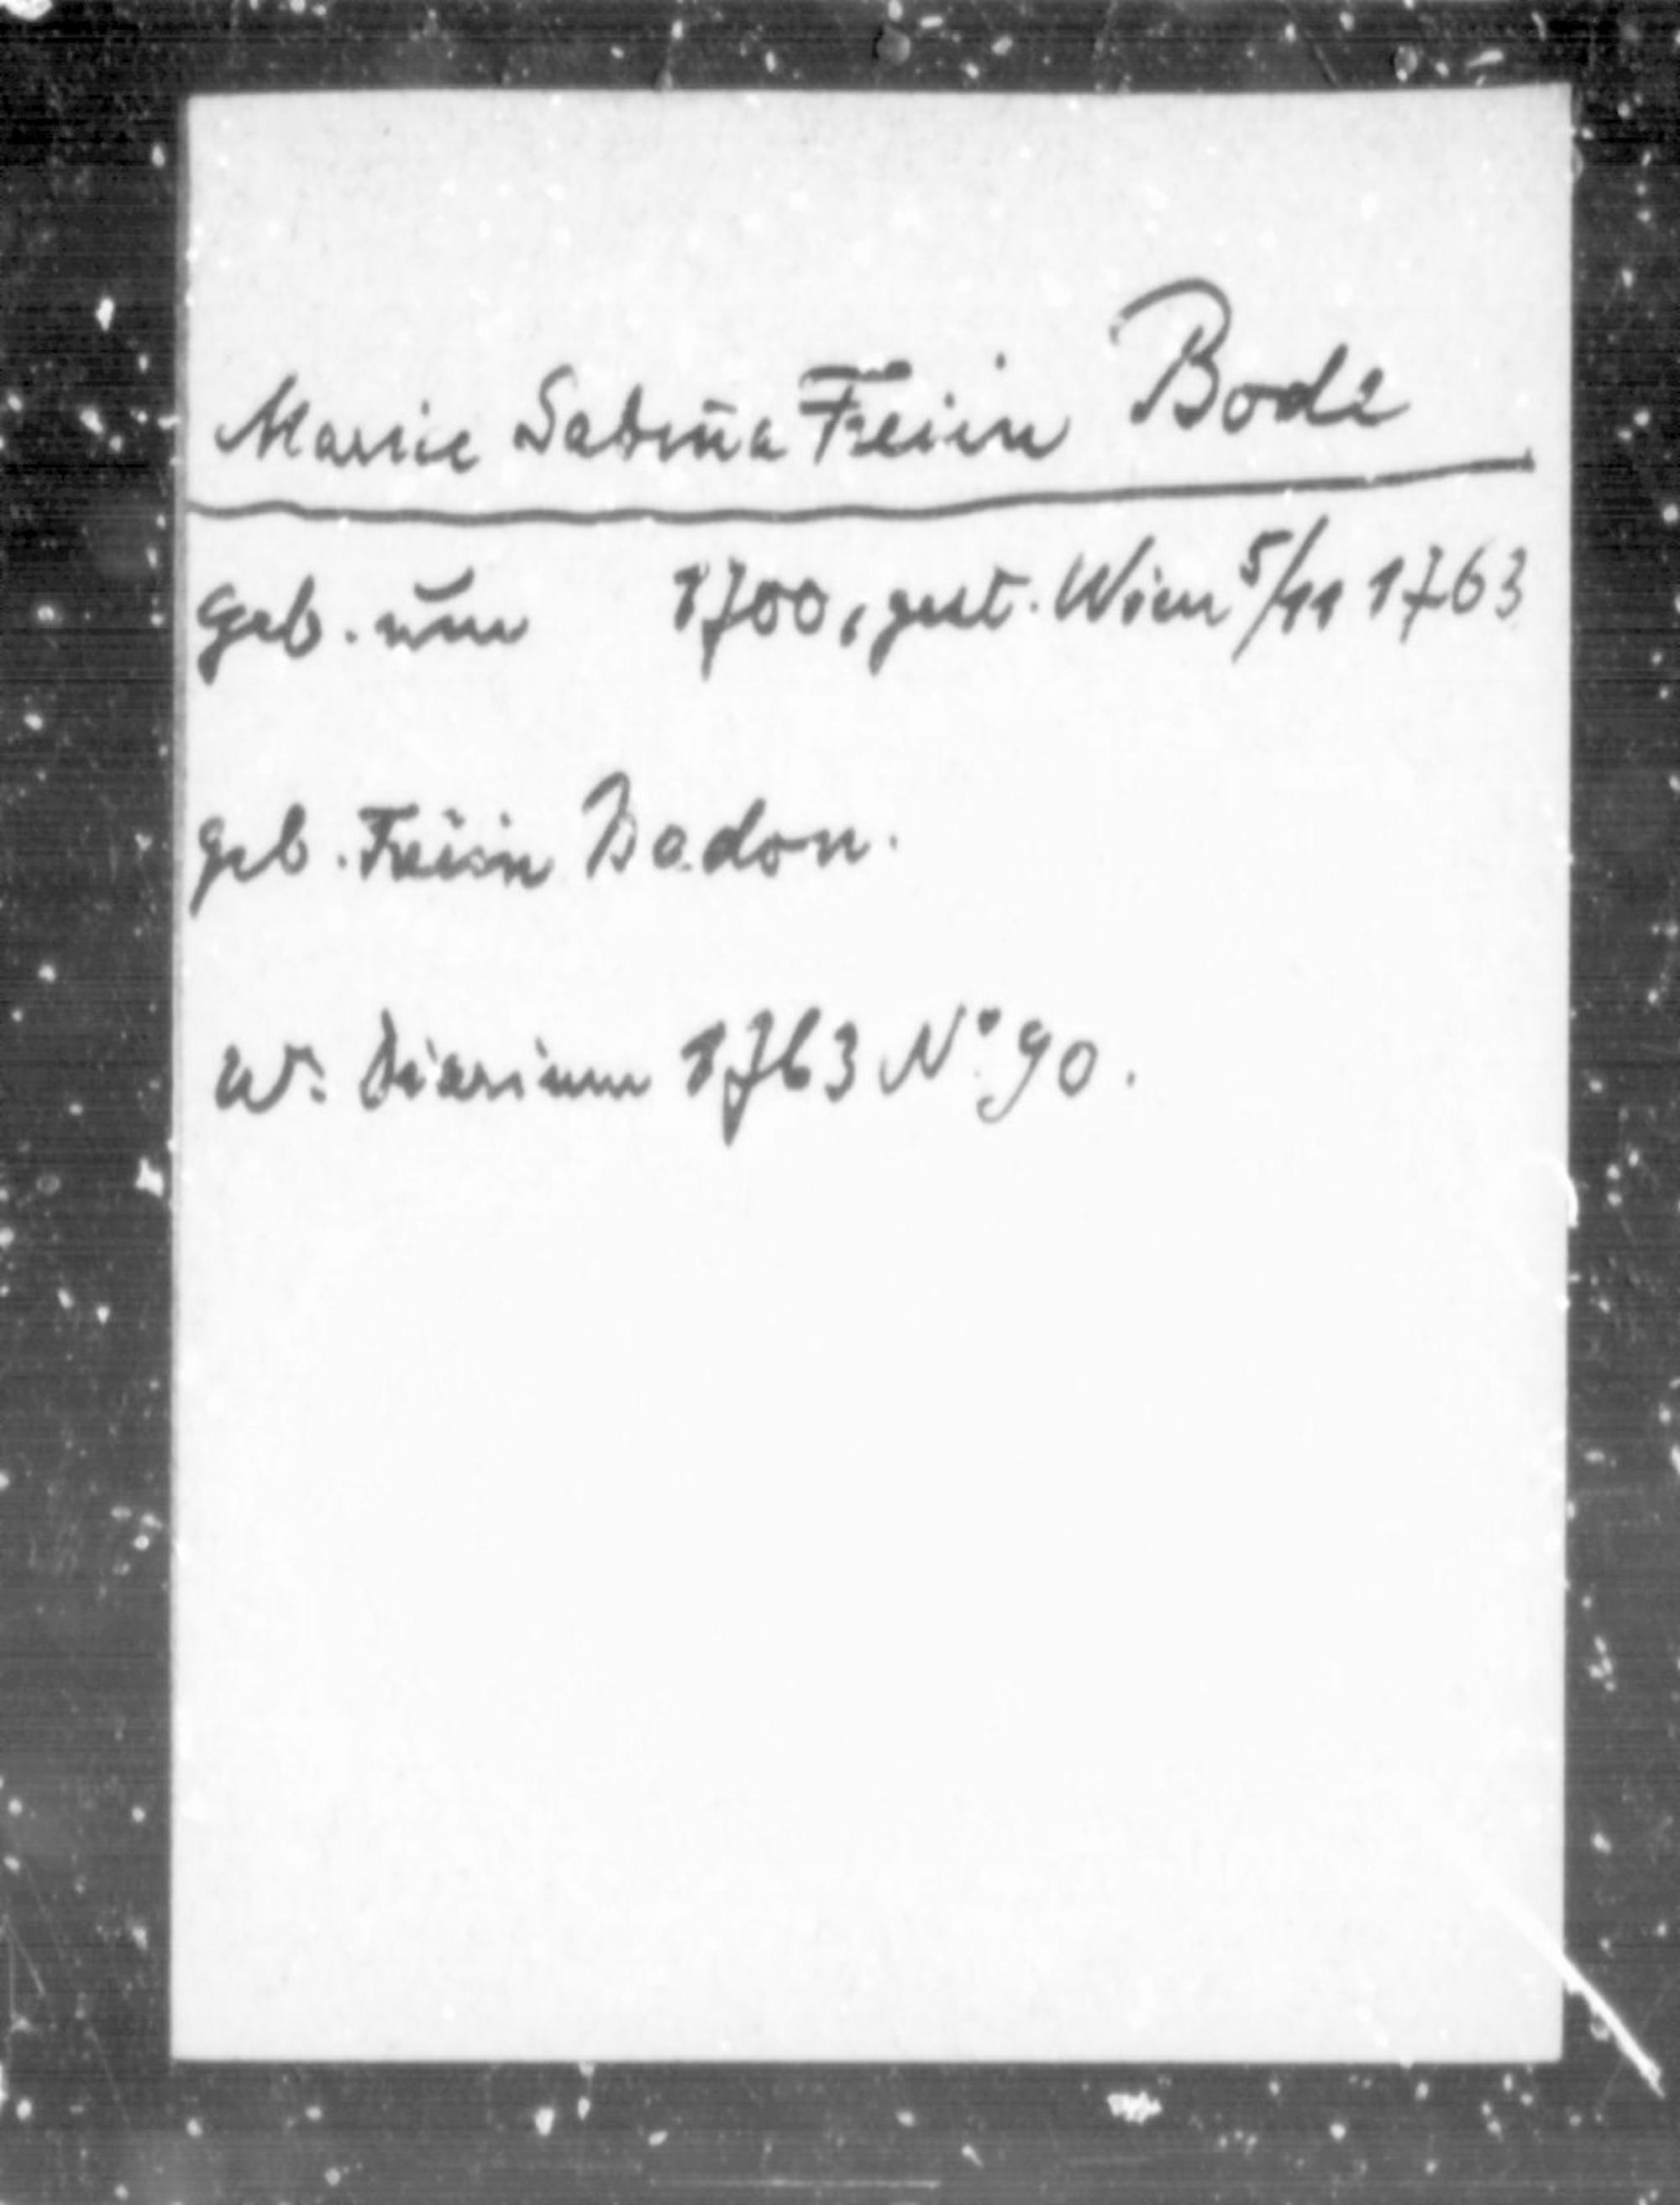 Marie Sabina Freiin Bode
geb. um 1700, gest. Wien 5/11 1763
geb. Freiin Bodon.
W. Diarium 1763 No. 90.